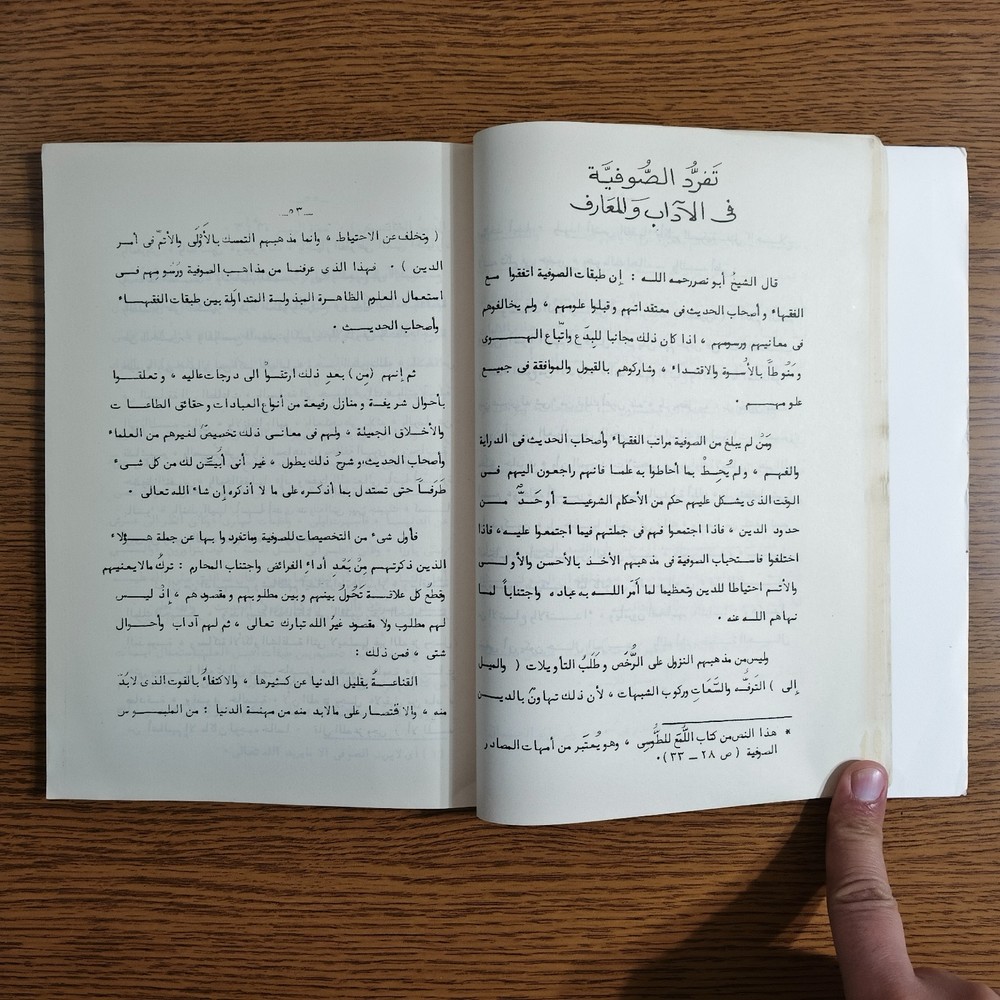 تَفرُّد الصُّوفيَّة
فى الآدَاب وَالمعَارف
قال الشيخُ أبو نصر رحمه اللـه : إن طبقات الصوفية اتفقوا مـع
الفقهاء وأصحاب الحديث فى معتقداتهم وقبلوا علومهم ، ولم يخالفوهم
فى معانيهم ورسومهم ، اذا كان ذلك مجانبا للبِدَع واتّباع الهــــوى
ومَنُوطاً بالأسوة والاقتـداء ، وشاركوهم بالقبول والموافقة فى جميـع
علومهـــم .
ومَنْ لم يبلغ من الصوفية مراتب الفقهاء وأصحاب الحديث فى الدراية
والفهـم ، ولم يُحِـطْ بما أحاطوا به علمـا فانهم راجعون اليهم فــى
الوقت الذى يشـكل عليهم حكم من الأحكام الشرعيـة أو حَـدٌّ مـــن
حدود الدين ، فاذا اجتمعوا فهم فى جملتهم فيما اجتمعوا عليـه ، فاذا
اختلفوا فاستحباب الصوفية فى مذهبهم الأخـذ بالأحسن والأولــى
والأتـم احتياطا للدين وتعظيما لما أمَر اللــه به عباده واجتناباً لمـا
نهاهم اللـه عنه .
وليس من مذهبهم النزول على الرُّخَص وطَلَبُ التأويلات ( والميـل
إلى ) الترفُّه والسَّعَات وركوب الشبهات ، لأن ذلك تهاونٌ بالديـــن
* هذا النص من كتاب اللُّمَع للطُّوسِى ، وهو يُعتَبر من أمهات المصادر
الصوفية ( ص ٢٨ ــ ٣٣ ) .
ــ٥٣ــ
( وتخلف عن الاحتياط ، وانما مذهبهم التمسك بالأوْلَى والأتمّ فى أمـر
الدين ) . فهـذا الذى عرفنـا من مذاهـب الصوفية ورُسُومهم فــى
استعمال العلوم الظاهـرة المبذولـة المتداوَلة بين طبقات الفقهـاء
وأصحاب الحديــث .
ثم إنهم (مِن) بعدِ ذلك ارتقوْا الى درجات عاليه ، وتعلقـــوا
بأحوال شريفـة ومنازل رفيعة من أنواع العبادات وحقائق الطاعـات
والأخـلاق الجميلة ، ولهم فى معانـى ذلك تخصيصٌ لغيرهم من العلماء
وأصحاب الحديث، وشرحُ ذلك يطول ، غير أنى أُبيـِّـن لك من كل شـىء
طَرَفـاً حتى تستدل بما أذكـره على ما لا أذكره إن شاء الله تعالى .
فأول شىء من التخصيصات للصوفية وماتفردوا بها عن جملة هــؤلاء
الذين ذكرتهـم مِنْ بَعْدِ أداء الفرائض واجتناب المحارم : تركُ مالا يعنيهم
وقطعُ كل علاقـة تَحُولُ بينهم وبين مطلوبهم ومقصودهم ، إذْ ليـس
لهم مطلوب ولا مقصود غيرُ الله تبارك تعالى ، ثم لهم آداب وأحـوال
شتى ، فمن ذلك :
القناعـةُ بقليل الدنيا عن كثيرها ، والاكتفاءُ بالقوت الذى لابدّ
منه ، والاقتصار على مالابد منه من مهنـة الدنيا : من الملبـوس